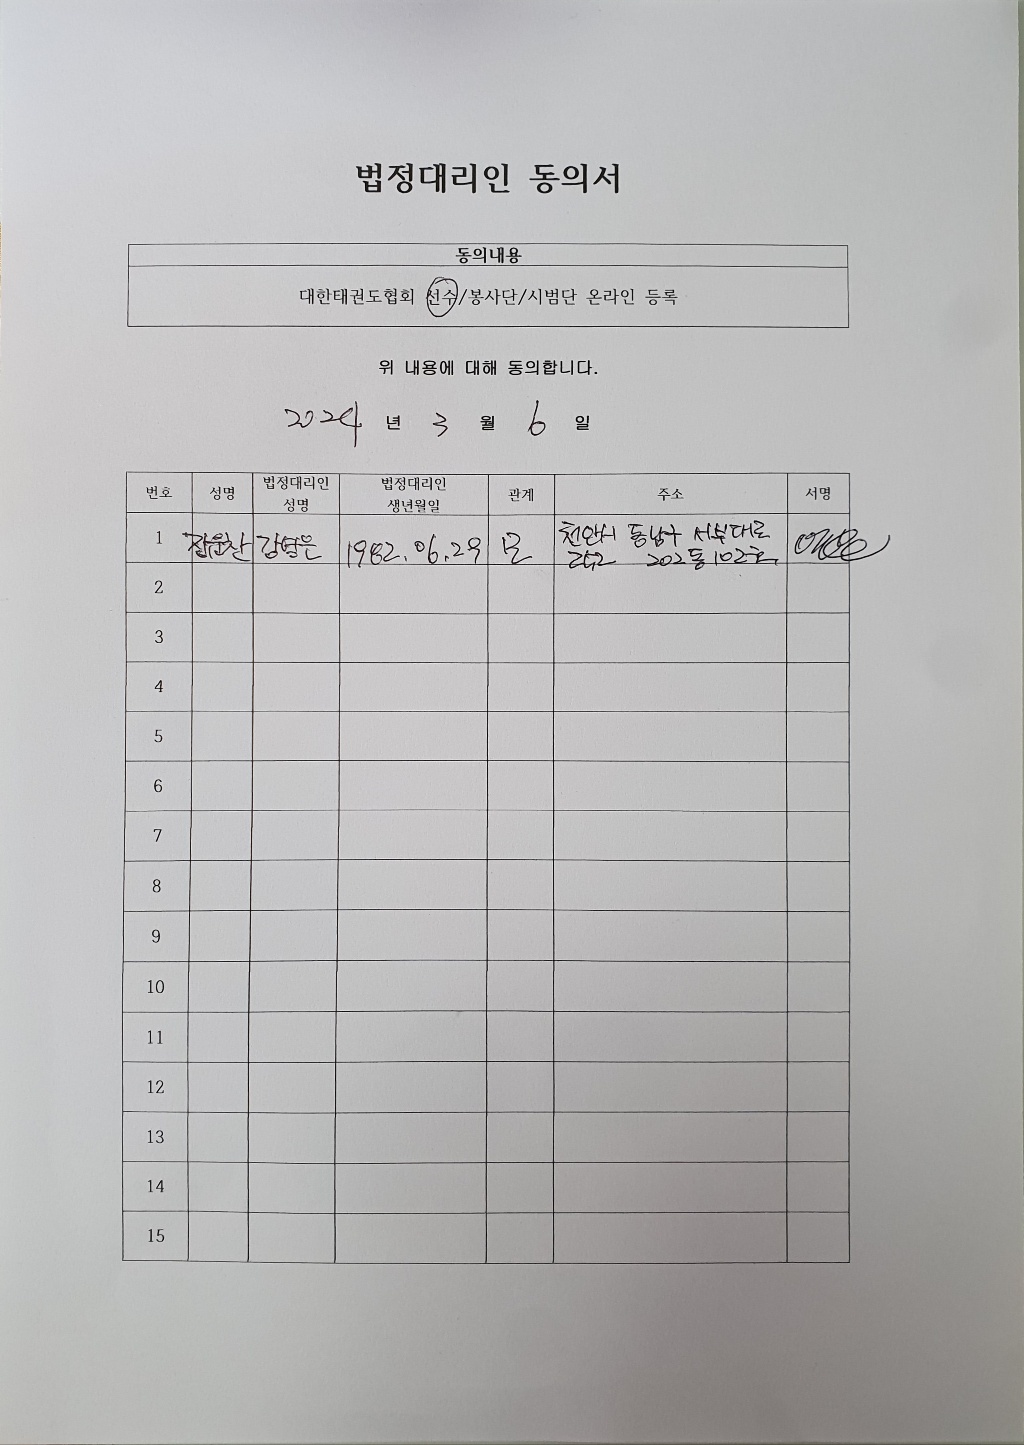 법정대리인 동의서
동의내용
대한태권도협회 선수/봉사단/시범단 온라인 등록
위 내용에 대해 동의합니다.
2024 년 3 월 6 일
번호 성명 법정대리인 성명 법정대리인 생년월일 관계 주소 서명
1 1982.06.29 모 천안시 동남구 서부대로
202동 102호
2
3
4
5
6
7
8
9
10
11
12
13
14
15